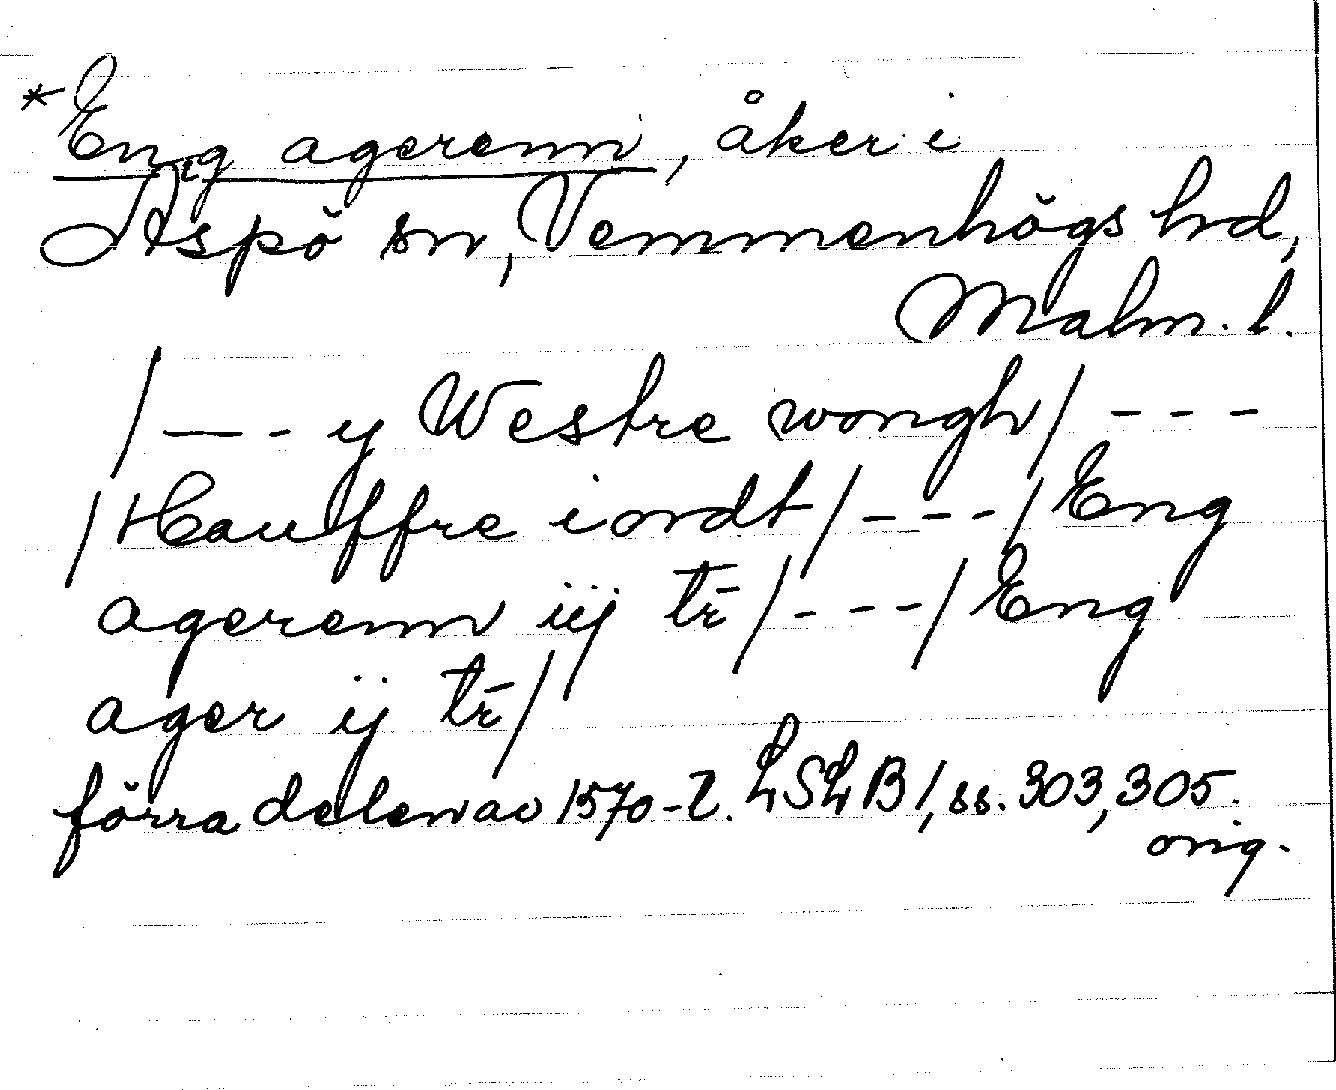 *Eng agerenn, åker i
Äspö sn, Vemmenhögs hd,
Malm. l.
/--- y Westre wongh/ ---
/Hauffre iordt/---/Eng
agerenn iij tr̄/---/Eng
ager ij tr̄/
förra delen av 1570-t. LSLB 1, ss. 303, 305.
orig.